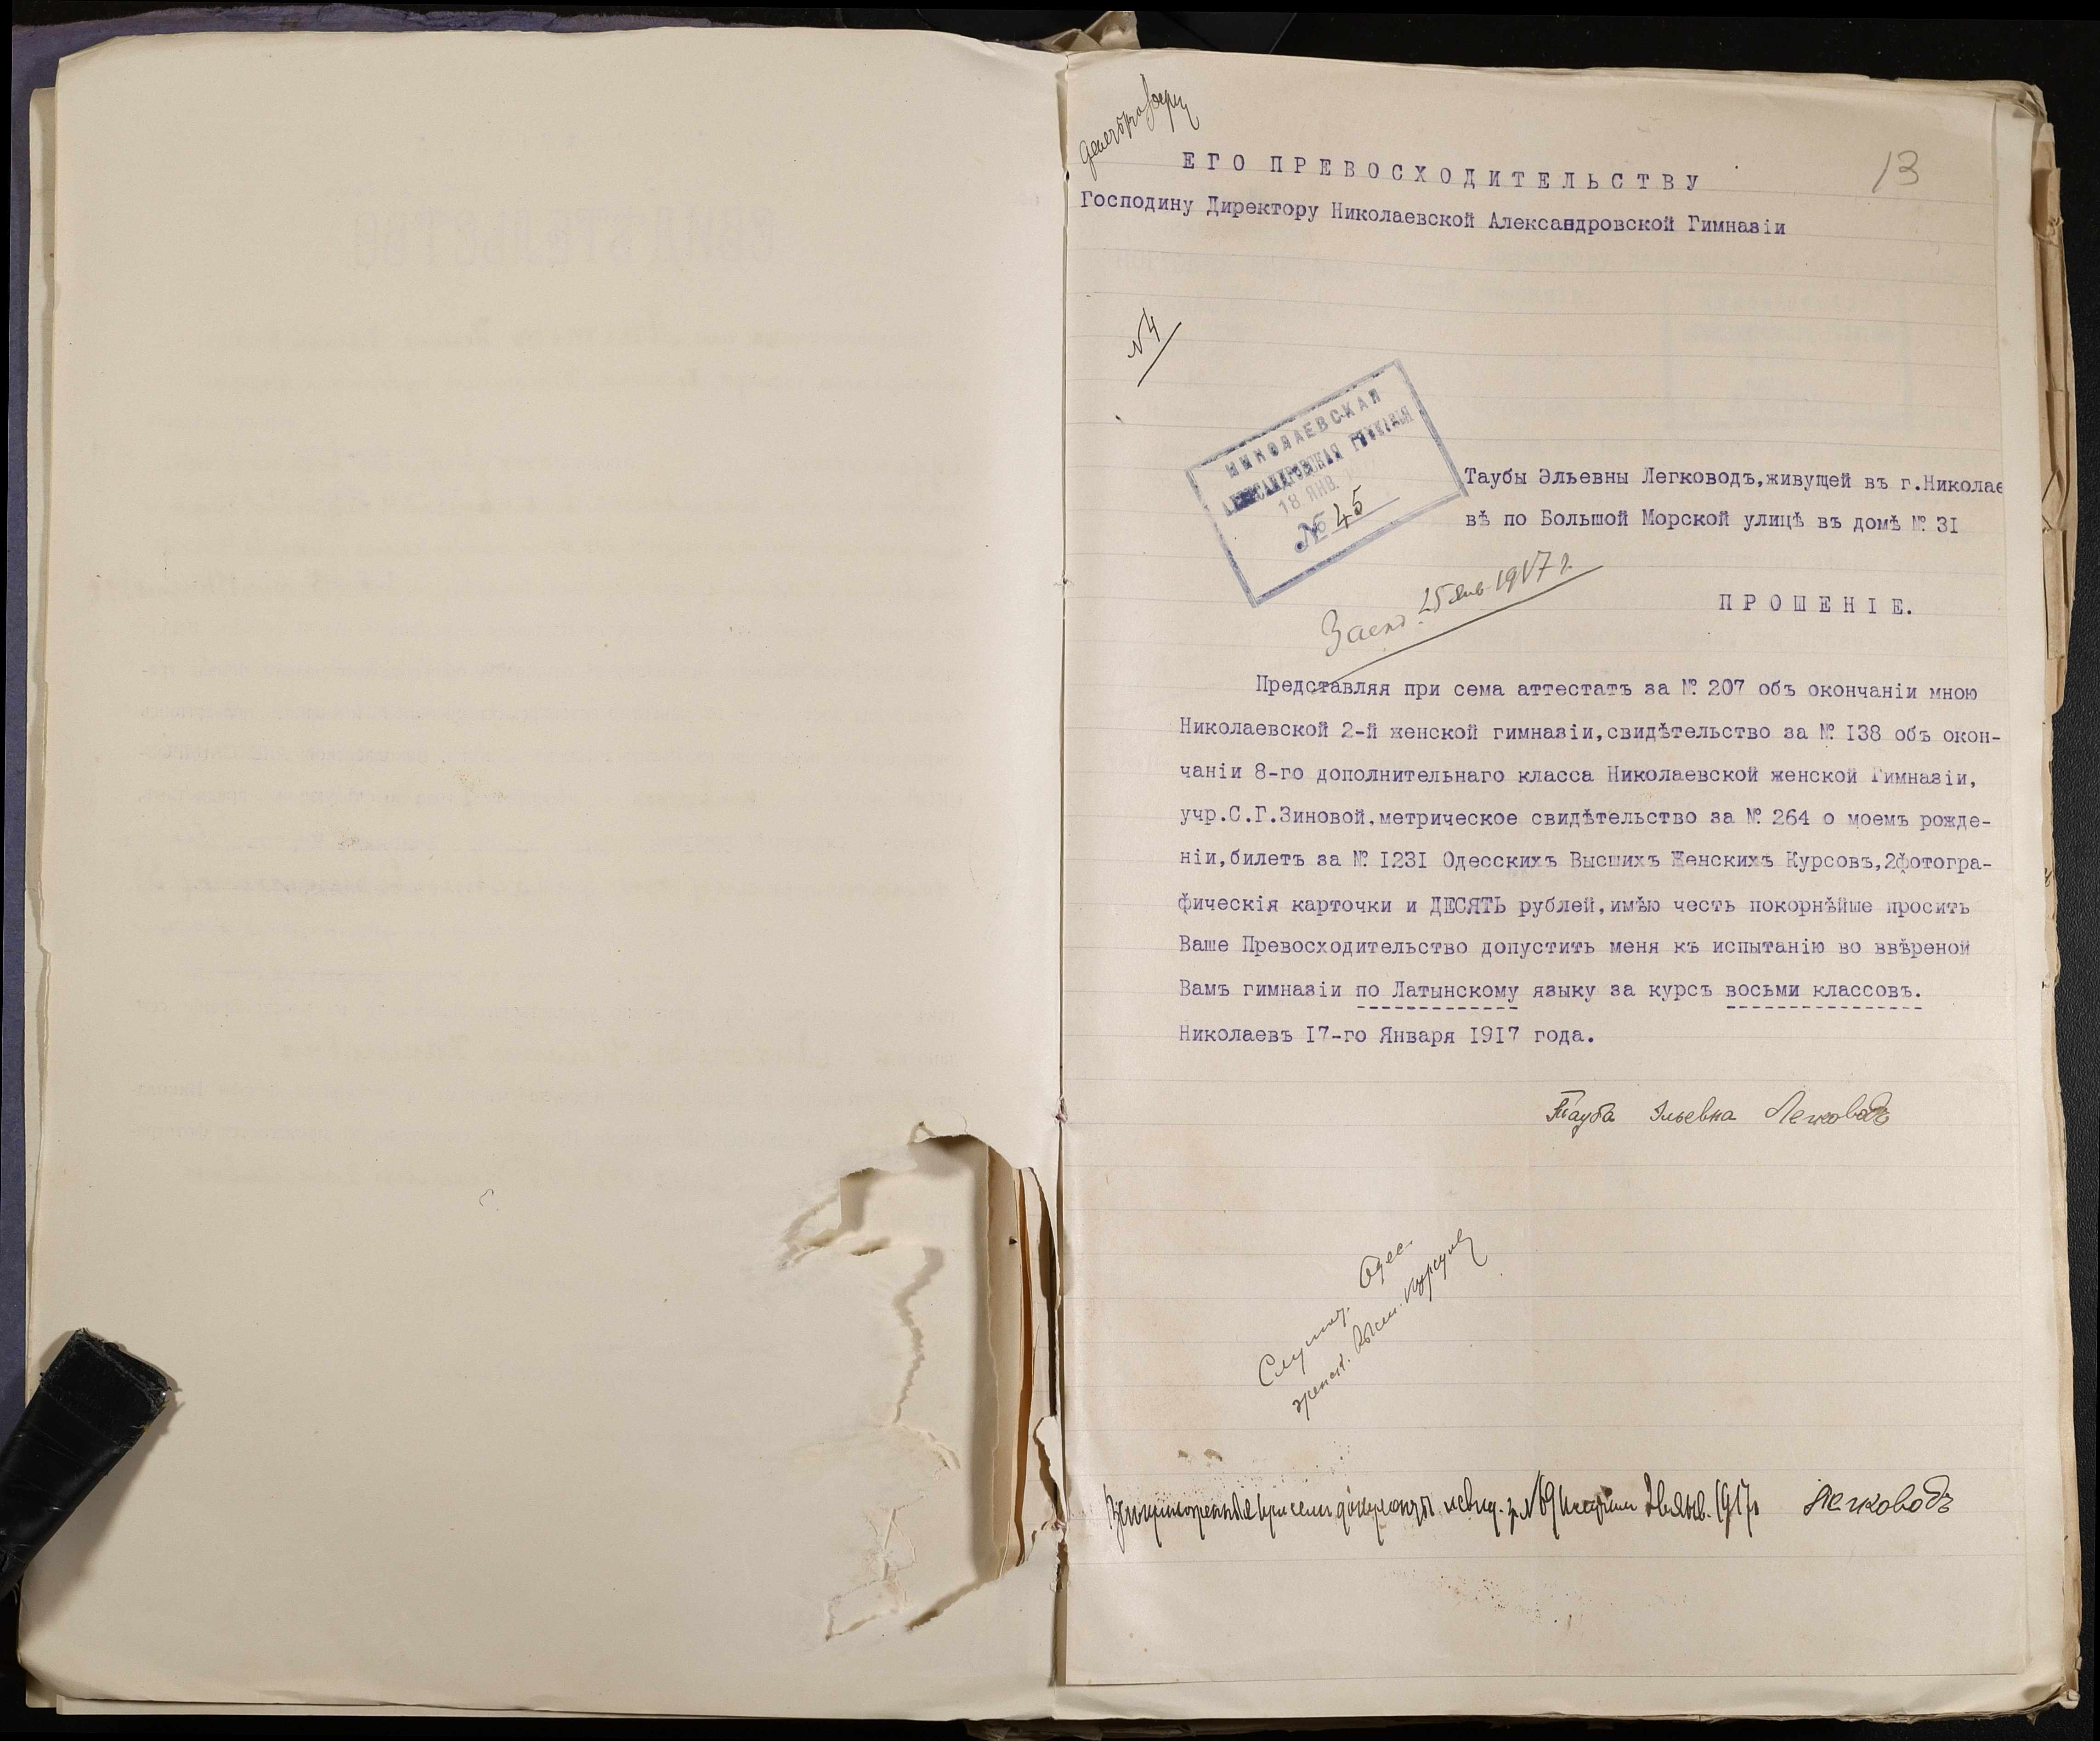 13
ЕГО ПРЕВОСХОДИТЕЛЬСТВУ
Господину Директору Николаевской Александровской Гимназіи
№ 4
НИКОЛАЕВСКАЯ
АЛЕКСАНДРОВСКАЯ ГИМНАЗІЯ
18 ЯНВ.
№ 45
Таубы Эльевны Легководъ,живущей въ г.Николае
вѣ по Большой Морской улицѣ въ домѣ № 31
25 Янв. 1917 г.
ПРОШЕНІЕ.
Представляя при сема аттестатъ за № 207 объ окончаніи мною
Николаевской 2-й женской гимназіи,свидѣтельство за № I38 объ окон-
чаніи 8-го дополнительнаго класса Николаевской женской Гимназіи,
учр.С.Г.Зиновой,метрическое свидѣтельство за № 264 о моемъ рожде-
ніи,билетъ за № I23I Одесскихъ Высшихъ Женскихъ Курсовъ,2фотогра-
фическія карточки и ДЕСЯТЬ рублей,имѣю честь покорнѣйше просить
Ваше Превосходительство допустить меня къ испытанію во ввѣреной
Вамъ гимназіи по Латынскому языку за курсъ восьми классовъ.
Николаевъ I7-го Января I9I7 года.
Тауба Эльевна Легководъ
Слушат. Одес.
женск. Высш. курсовъ
документы 1917 г. Легководъ